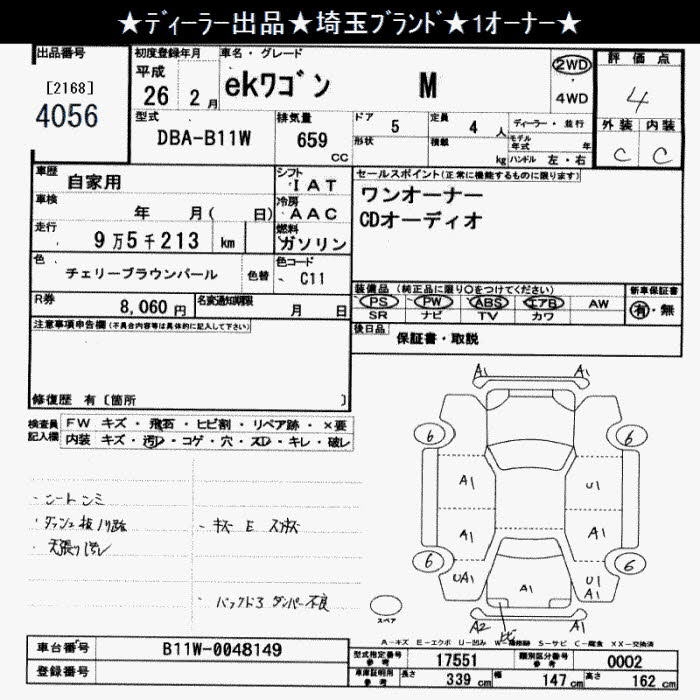 ★ディーラー出品★埼玉ブランド★1オーナー★
出品番号
[2168]
4056
初度登録年月
平成
26年 2月
車名・グレード
ekワゴン M
2WD
4WD
評価点
4
外装 内装
C C
型式
DBA-B11W
排気量
659
CC
ドア 5
形状
定員 4人
積載 kg
ディーラー・並行
モデル年式 年
ハンドル 左・右
車歴
自家用
車検
年 月( 日)
走行
9万5千213 km
色
チェリーブラウンパール
色替
シフト
IAT
冷房
AAC
燃料
ガソリン
色コード
C11
セールスポイント(正常に機能するものに限ります)
ワンオーナー
CDオーディオ
R券
8,060円
名変通知期限
月 日
装備品 (純正品に限り○をつけてください)
PS PW ABS エアB AW
SR ナビ TV カワ
新車保証書
有・無
後日品
保証書・取説
注意事項申告欄(不具合内容等は具体的に記入して下さい)
修復歴 有〔箇所 〕
検査員
記入欄
FW キズ・飛石・ヒビ割・リペア跡・×要
内装 キズ・汚レ・コゲ・穴・スレ・キレ・破レ
・シートシミ
・ダッシュ板ノリ跡
・天張り汚レ
・キズ E スリキズ
・バックドア ダンパー不良
A1 A1
6 6
A1 U1
A1 A1
6 6
UA1 A1 U1 A1
A2 A1
スペア
A-キズ E-エクボ U-凹み W-補修跡 S-サビ C-腐食 XX-交換済
車台番号
B11W-0048149
登録番号
型式指定番号
参考
17551
類別区分番号
参考
0002
車庫証明用
参考
長さ 339 cm
幅 147 cm
高さ 162 cm